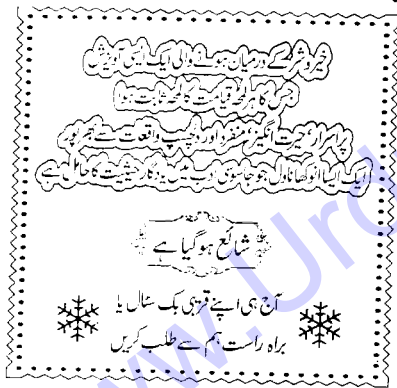 خیر و شر کے درمیان ہونے والی ایک ایسی آویزش
جس کا ہر لمحہ قیامت کا لمحہ ثابت ہوا
پراسرار، حیرت انگیز، منفرد اور دلچسپ واقعات سے بھرپور
ایک ایسا انوکھا ناول جو جاسوسی ادب میں یادگار حیثیت کا حامل ہے
شائع ہو گیا ہے
آج ہی اپنے قریبی بک سٹال یا
براہ راست ہم سے طلب کریں
www.Urd